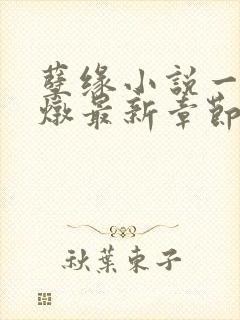 孽缘小説一
燉最新章節
秋葉東子